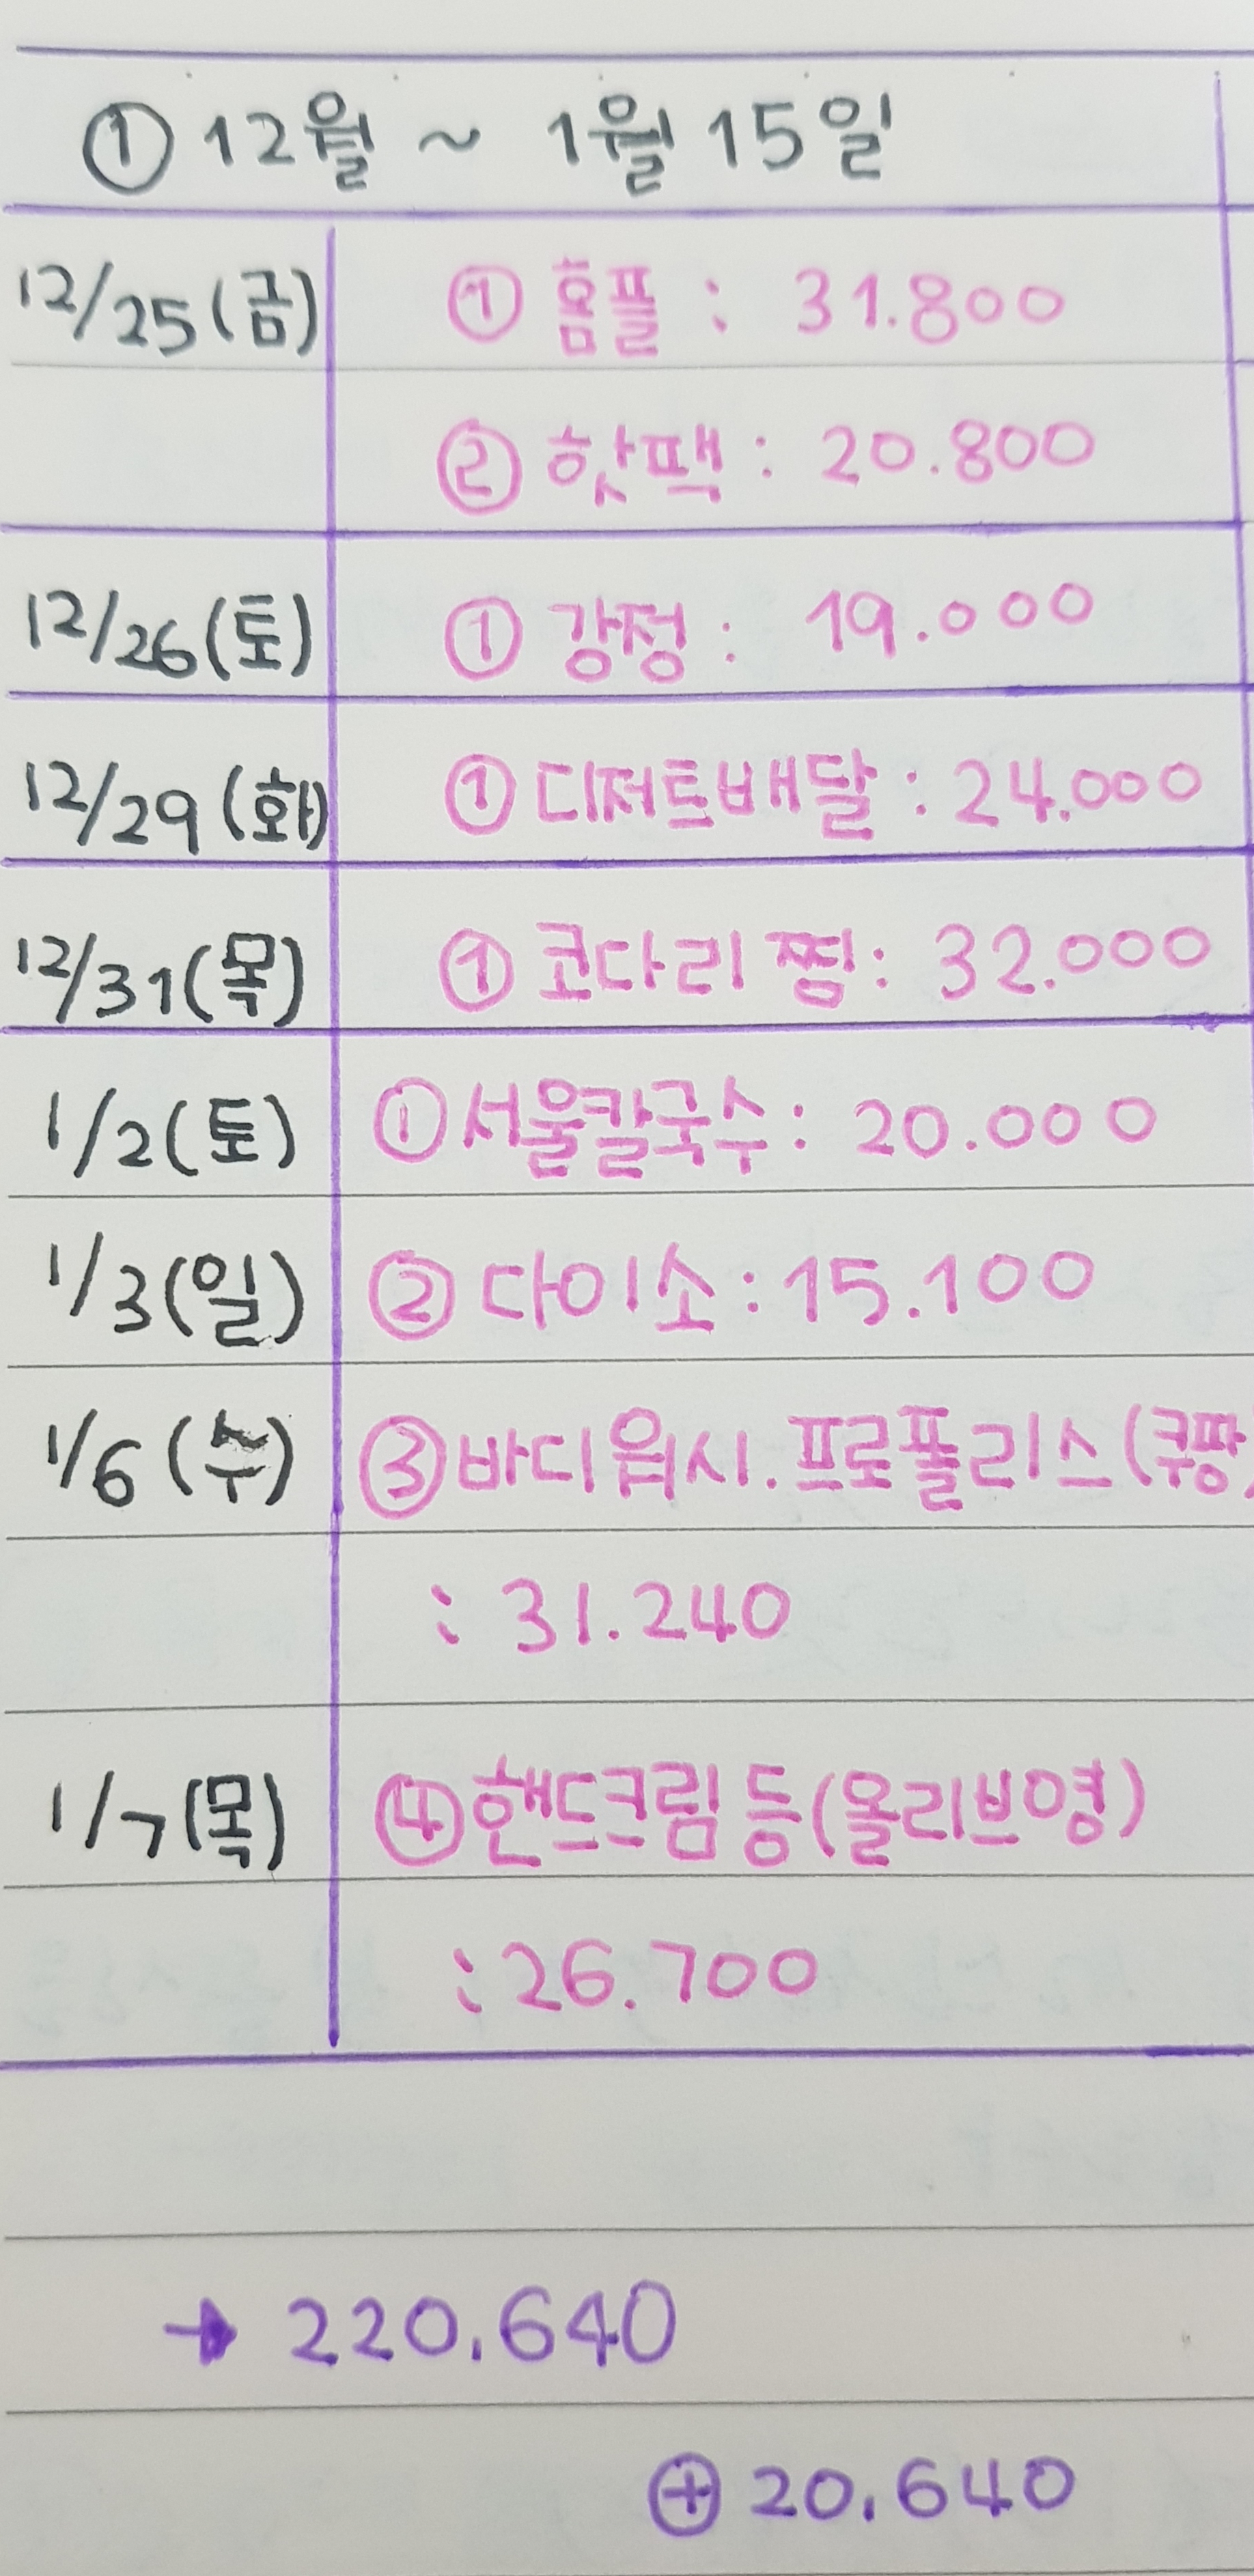 ① 12월 ~ 1월 15일
12/25 (금) ① 홈플 : 31.800
② 핫팩 : 20.800
12/26 (토) ① 강정 : 19.000
12/29 (화) ① 디저트배달 : 24.000
12/31 (목) ① 코다리찜 : 32.000
1/2 (토) ① 서울칼국수 : 20.000
1/3 (일) ② 다이소 : 15.100
1/6 (수) ③ 바디워시. 프로폴리스 (쿠팡)
: 31.240
1/7 (목) ④ 핸드크림 등 (올리브영)
: 26.700
→ 220.640
⊕ 20.640